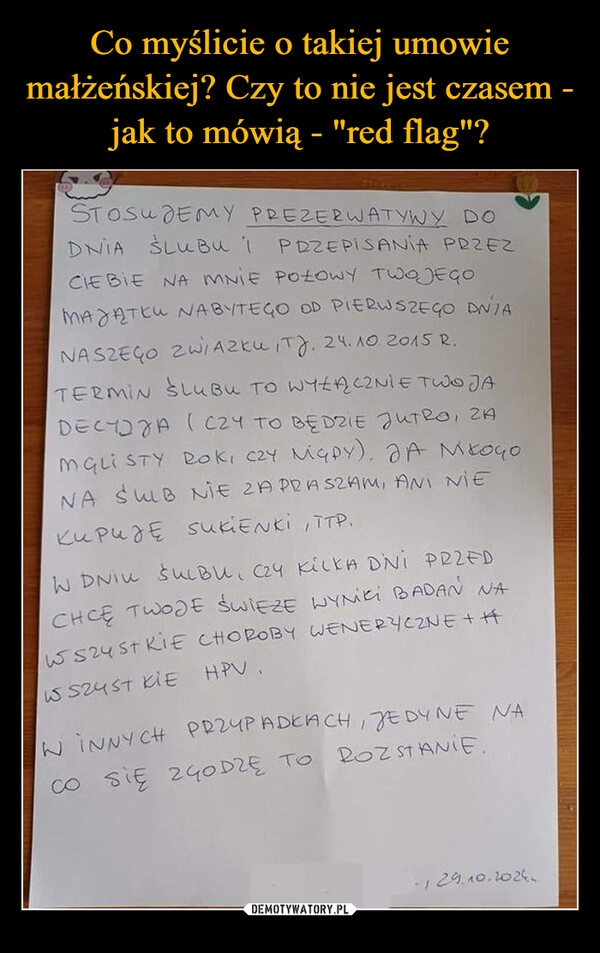 Co myślicie o takiej umowie
małżeńskiej? Czy to nie jest czasem -
jak to mówią - "red flag"?
STOSUJEMY PREZERWATYWY DO
DNIA ŚLUBU I PRZEPISANIA PRZEZ
CIEBIE NA MNIE POŁOWY TWOJEGO
MAJĄTKU NABYTEGO OD PIERWSZEGO DNIA
NASZEGO ZWIAZKU, TJ. 24.10.2015 R.
TERMIN ŚLUBU TO WYŁĄCZNIE TWOJA
DECYZJA (CZY TO BĘDZIE JUTRO, ZA
MGLISTY ROK, CZY NIGDY). JA NIKOGO
NA ŚLUB NIE ZAPRASZAM, ANI NIE
KUPUJĘ SUKIENKI, ITP.
W DNIU ŚLUBU, CZY KILKA DNI PRZED
CHCĘ TWOJE ŚWIEŻE WYNIKI BADAŃ NA
WSZYSTKIE CHOROBY WENERYCZNE +
WSZYSTKIE HPV.
W INNYCH PRZYPADKACH, JEDYNE NA
CO SIĘ ZGODZĘ TO ROZSTANIE.
29.10.2024
DEMOTYWATORY.PL